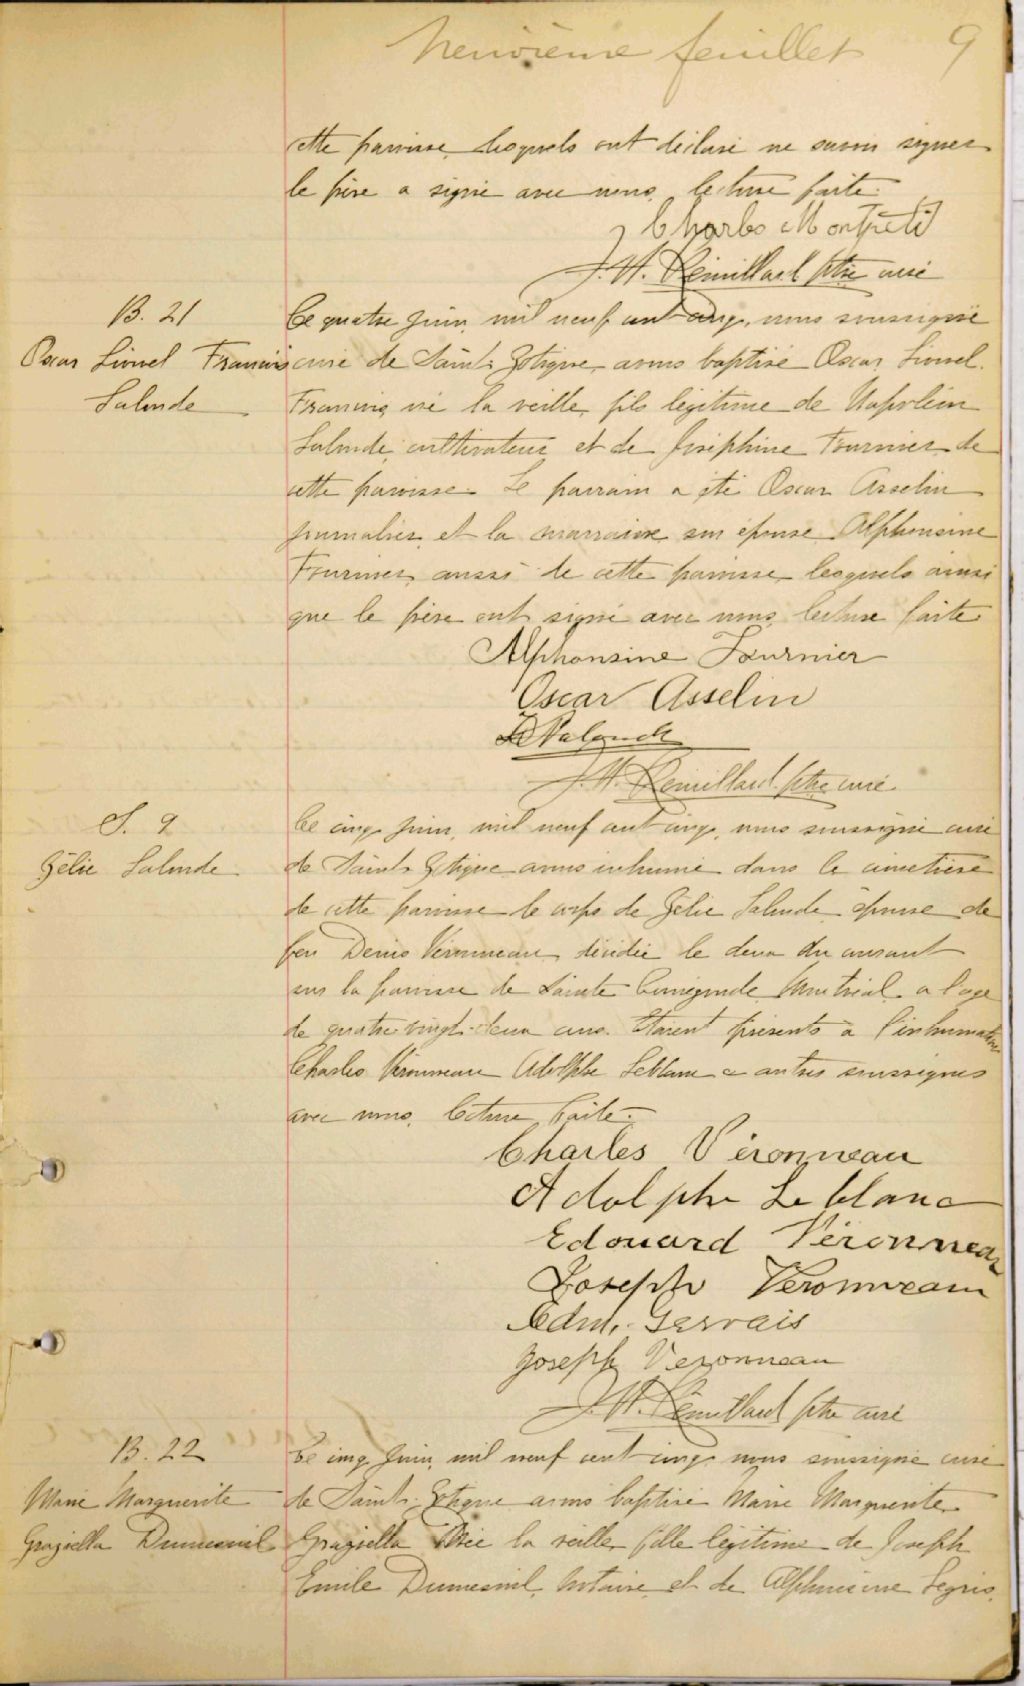 Neuvième feuillet 9
cette paroisse, lesquels ont déclaré ne savoir signer
le père a signé avec nous, lecture faite.
Charles Montpetit
J. H. Rémillard ptre curé
B. 21
Oscar Lionel Francis
Lalonde
Ce quatre juin, mil neuf cent cinq, nous soussigné
curé de Saint-Zotique, avons baptisé Oscar Lionel
Francis, né la veille, fils légitime de Napoléon
Lalonde, cultivateur et de Joséphine Fournier, de
cette paroisse. Le parrain a été Oscar Asselin
journalier, et la marraine son épouse Alphonsine
Fournier, aussi de cette paroisse, lesquels ainsi
que le père ont signé avec nous, lecture faite
Alphonsine Fournier
Oscar Asselin
Lalonde
J. H. Rémillard ptre curé
S. 9
Zélie Lalonde
Ce cinq juin, mil neuf cent cinq, nous soussigné curé
de Saint-Zotique avons inhumé dans le cimetière
de cette paroisse le corps de Zélie Lalonde épouse de
feu Denis Véronneau, décédée le deux du courant
sur la paroisse de Sainte Cunégonde Montréal a l'age
de quatre-vingt-deux ans. Etaient présents à l'inhumation
Charles Véronneau Adolphe Leblanc & autres soussignés
avec nous, lecture faite.
Charles Véronneau
Adolphe Leblanc
Edouard Véronneau
Joseph Veronneau
Edm. Gervais
Joseph Veronneau
J. H. Rémillard ptre curé
B. 22
Marie Marguerite
Graziella Dumesnil
Ce cinq juin, mil neuf cent cinq, nous soussigné curé
de Saint-Zotique avons baptisé Marie Marguerite
Graziella née la veille, fille légitime de Joseph
Emile Dumesnil, notaire, et de Alphonsine Legris,